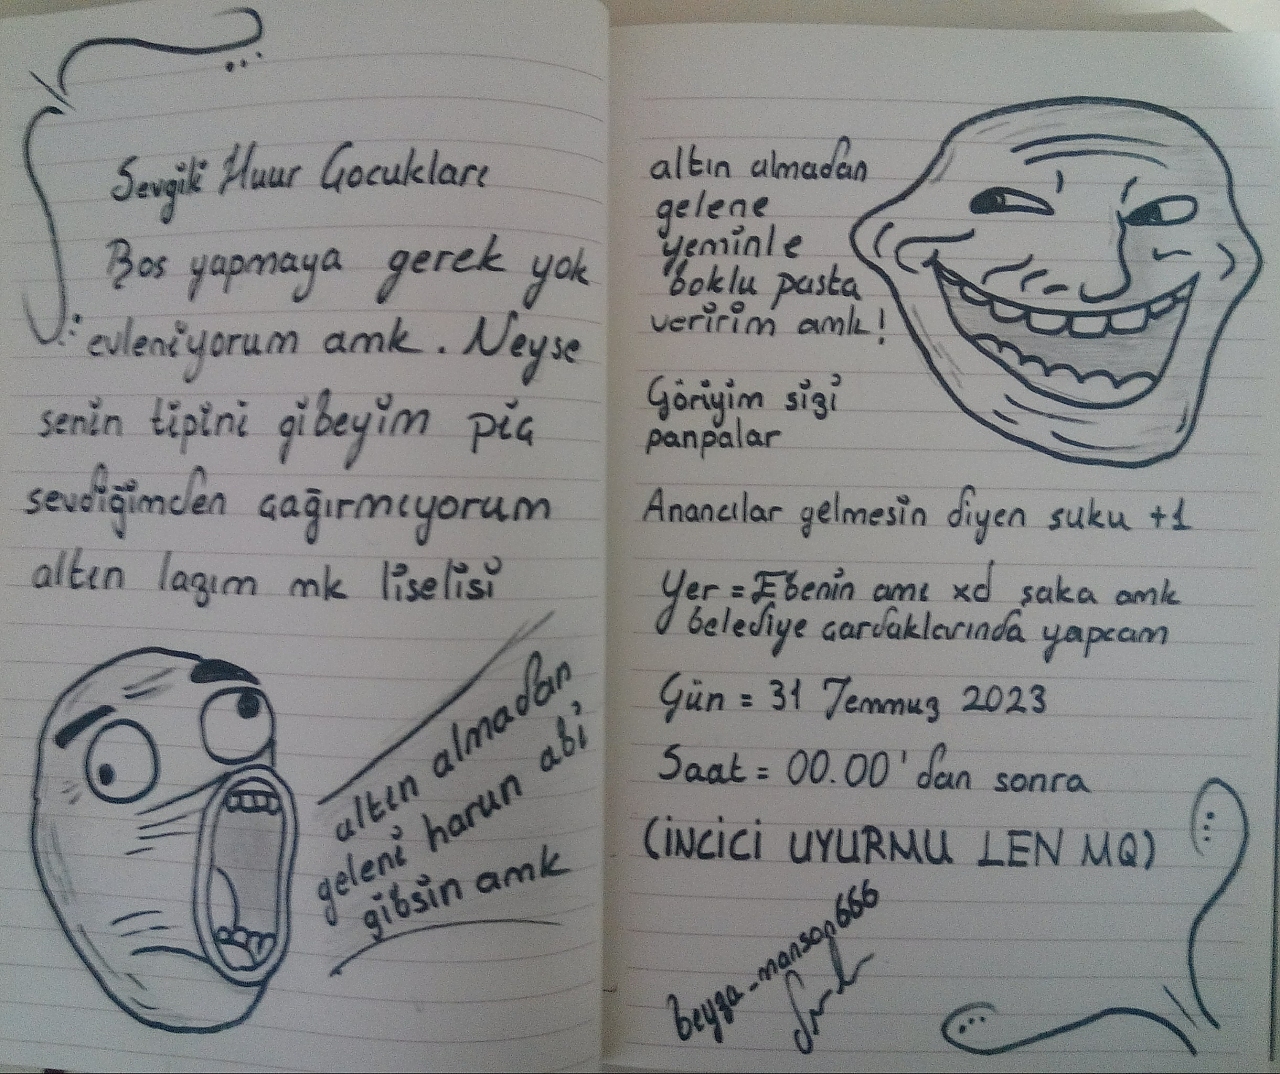 Sevgili Huur Çocukları
Boş yapmaya gerek yok
evleniyorum amk. Neyse
senin tipini gibeyim piç
sevdiğimden çağırmıyorum
altın lazım mk liselisi
altın almadan
geleni harun abi
gibsin amk
altın almadan
gelene
yeminle
boklu pasta
veririm amk!
Göriyim sizi
panpalar
Anancılar gelmesin diyen şuku +1
Yer = Ebenin amı xd şaka amk
belediye çardaklarında yapcam
Gün = 31 Temmuz 2023
Saat = 00.00'dan sonra
(İNCİCİ UYURMU LEN MQ)
beyza_manson666